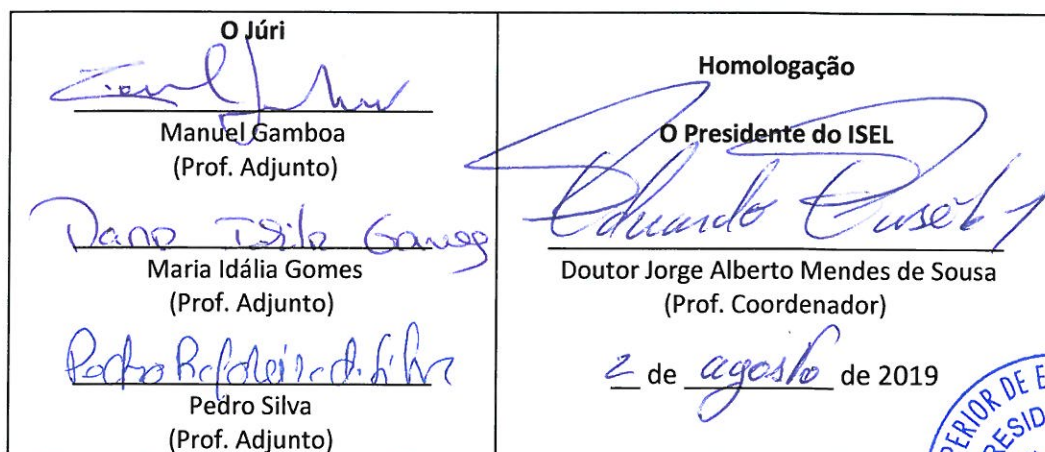 O Júri
Manuel Gamboa
(Prof. Adjunto)
Maria Idália Gomes
(Prof. Adjunto)
Pedro Silva
(Prof. Adjunto)
Homologação
O Presidente do ISEL
Eduardo Eusébio
Doutor Jorge Alberto Mendes de Sousa
(Prof. Coordenador)
2 de agosto de 2019